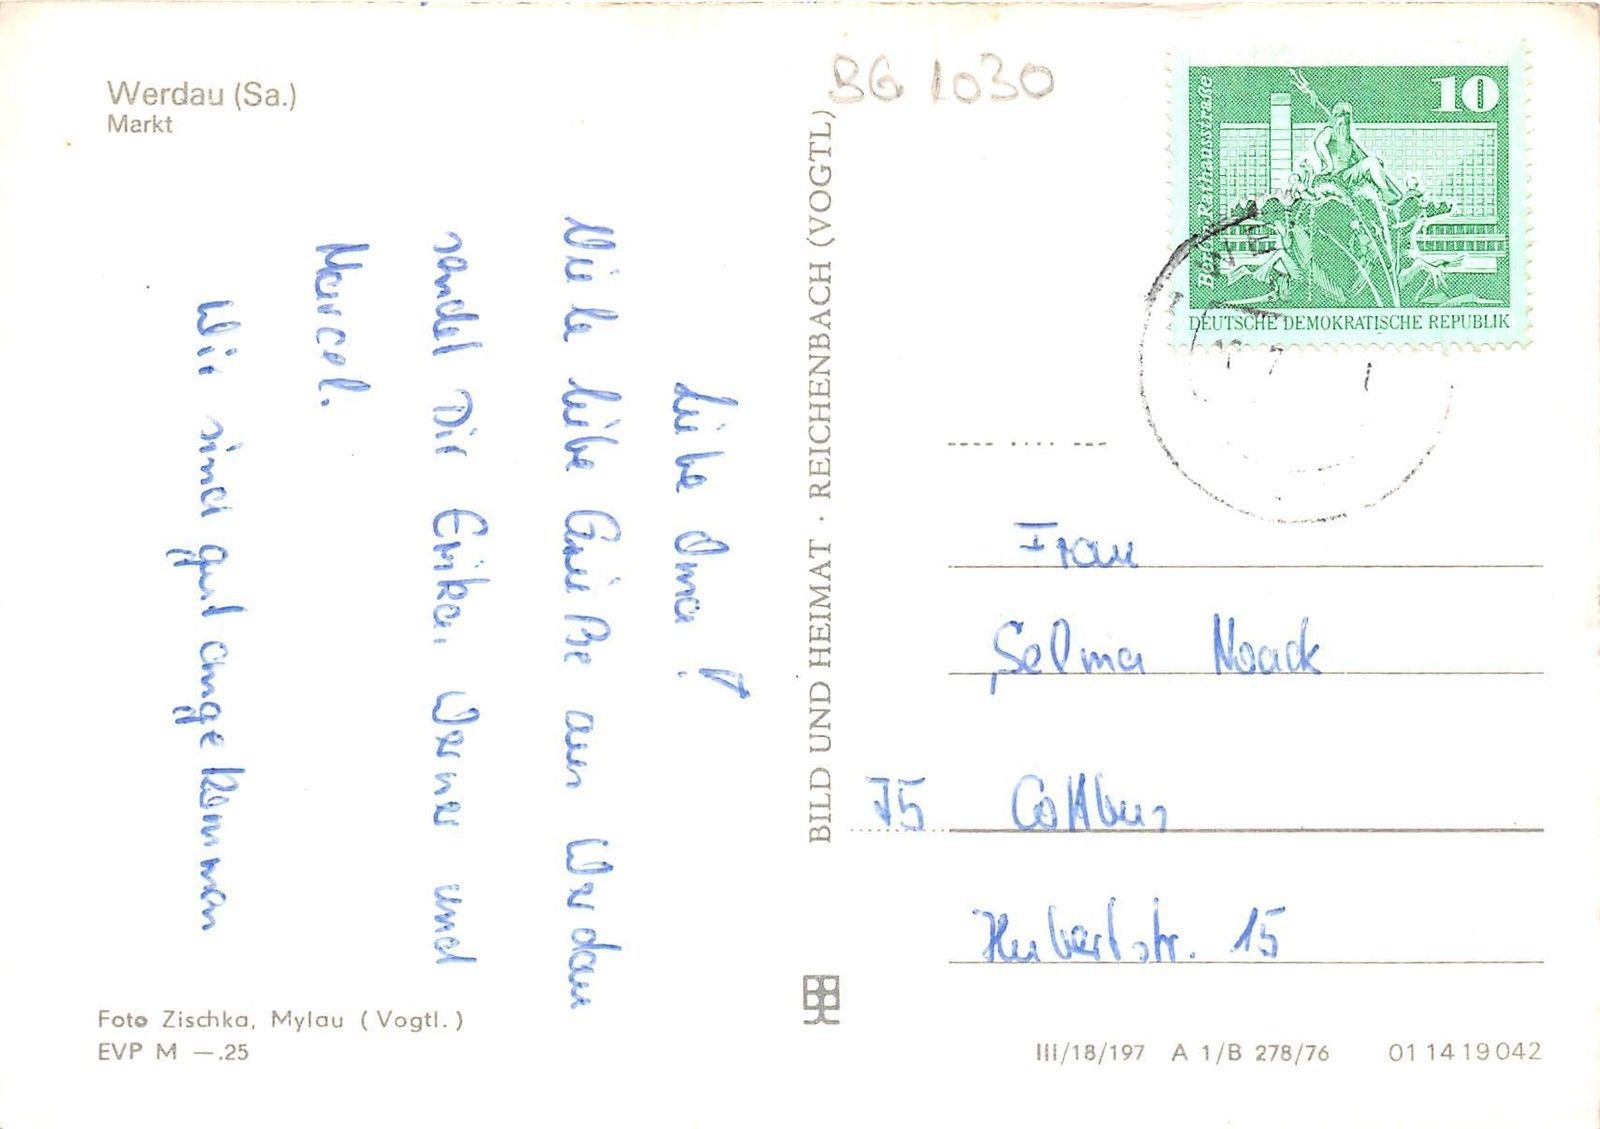 Werdau (Sa.)
Markt
BG 1030
10
Berlin, Rathausstraße
DEUTSCHE DEMOKRATISCHE REPUBLIK
Liebe Oma!
Viele liebe Grüße aus Werdau
sendet Dir Erika, Werner und
Marcel.
Wir sind gut angekommen
BILD UND HEIMAT · REICHENBACH (VOGTL)
Frau
Selma Noack
75 Cottbus
Hubertstr. 15
Foto Zischka, Mylau (Vogtl.)
EVP M —.25
III/18/197 A 1/B 278/76 01 14 19 042